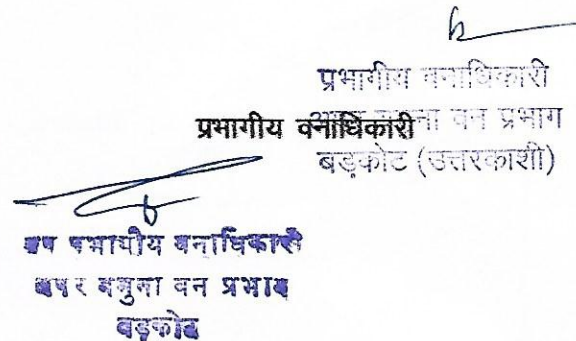 प्रभागीय वनाधिकारी
वन प्रभाग
बड़कोट (उत्तरकाशी)
प्रभागीय वनाधिकारी
उप प्रभागीय वनाधिकारी
अपर यमुना वन प्रभाग
बड़कोट